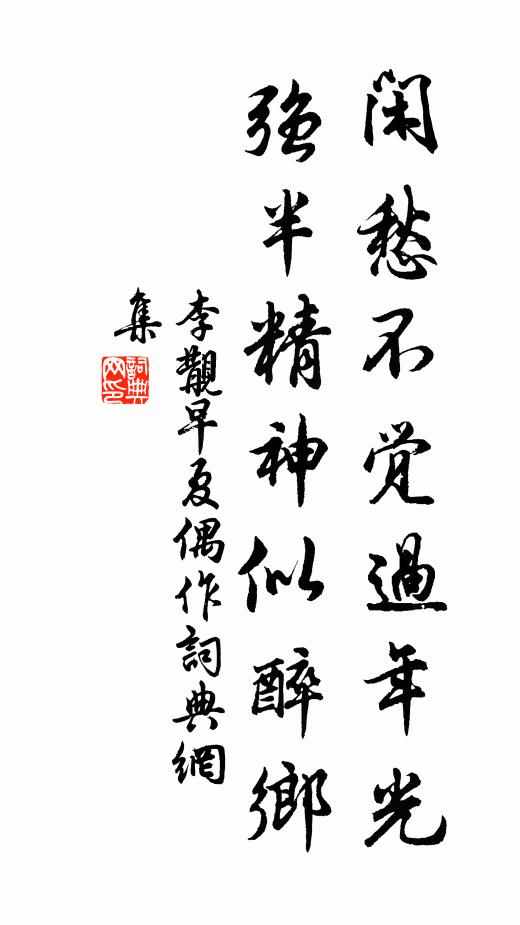 闲愁不觉過年光
强半精神似醉鄉
李覯早夏偶作詞典網
集
詞典网印